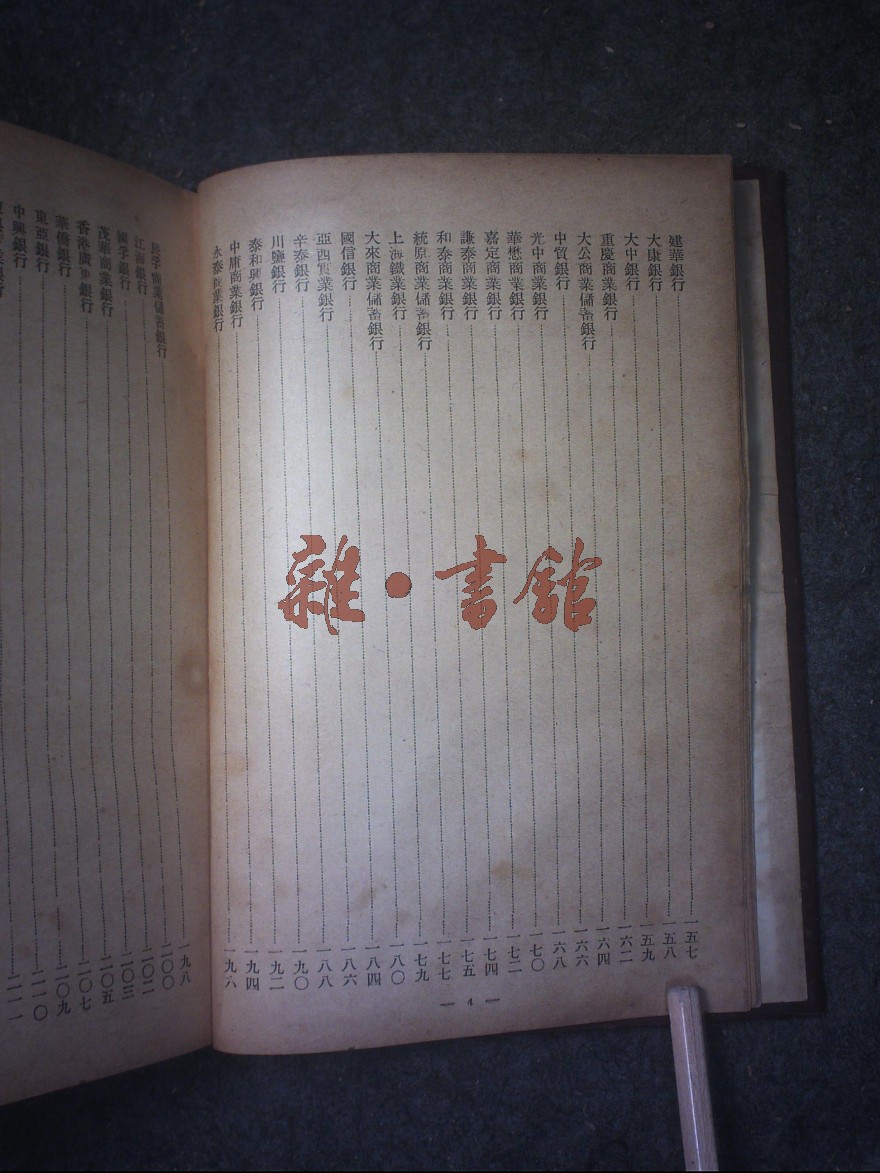 建華銀行 一五七
大康銀行 一五八
大中銀行 一五九
重慶商業銀行 一六二
大公商業儲蓄銀行 一六四
中貿銀行 一六六
光中商業銀行 一六八
華懋商業銀行 一七〇
嘉定商業銀行 一七二
謙泰商業銀行 一七四
和泰商業銀行 一七五
統原商業儲蓄銀行 一七七
上海鐵業銀行 一七九
大來商業儲蓄銀行 一八〇
國信銀行 一八四
亞西實業銀行 一八六
辛泰銀行 一八八
川鹽銀行 一九〇
泰和興銀行 一九二
中庸商業銀行 一九四
永泰商業銀行 一九六
— 4 —
民孚商業儲蓄銀行 一九八
江海銀行 二〇〇
國孚銀行 二〇二
茂華商業銀行 二〇三
香港廣東銀行 二〇五
華僑銀行 二〇七
東亞銀行 二〇九
中興銀行 二一〇
雜·書館